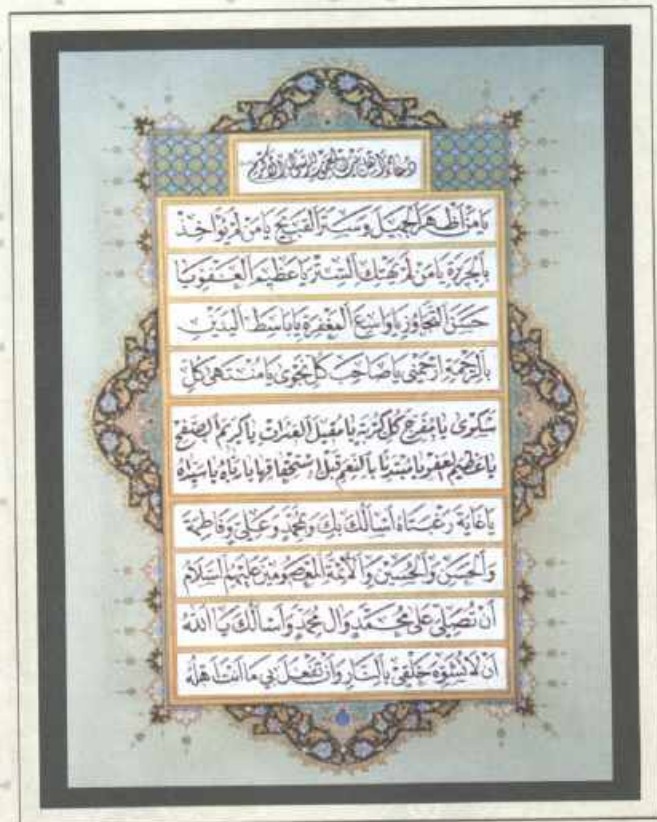 دعاء اهل بيت المعمور الاكرم
يا من اظهر الجميل وستر القبيح يا من لم يؤاخذ
بالجريرة يا من لم يهتك الستر يا عظيم العفو يا
حسن التجاوز يا واسع المغفرة يا باسط اليدين
بالرحمة ارحمني يا صاحب كل نجوى يا منتهى كل
شكوى يا مفرج كل كربة يا مقيل العثرات يا كريم الصفح
يا عظيم العفو يا مبتدئا بالنعم قبل استحقاقها يا رباه يا سيداه
يا غاية رغبتاه اسألك بك وبمحمد وعلي وفاطمة
والحسن والحسين والائمة المعصومين عليهم السلام
ان تصلي على محمد وآل محمد واسألك يا الله
ان لا تشوه خلقي بالنار وان تفعل بي ما انت اهله